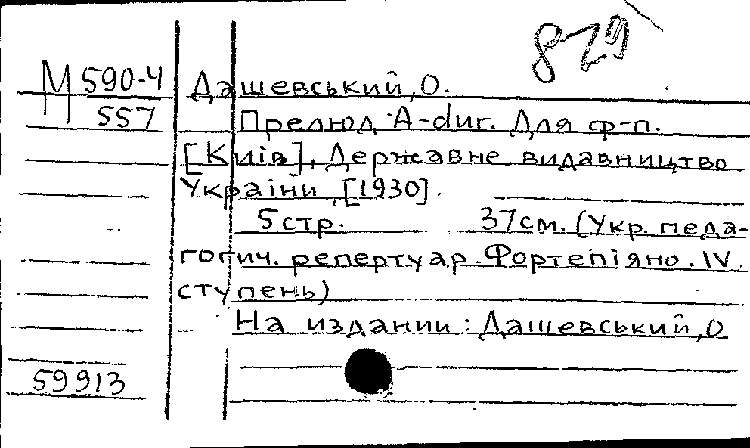 829
М 590-4
557
Дашевський, О.
Прелюд A-dur. Для ф-п.
[Київ], Державне видавництво
України, [1930].
5 стр. 37 см. (Укр. педа-
гогич. репертуар. Фортепіяно. IV.
ступень)
На издании: Дашевський, О
59913